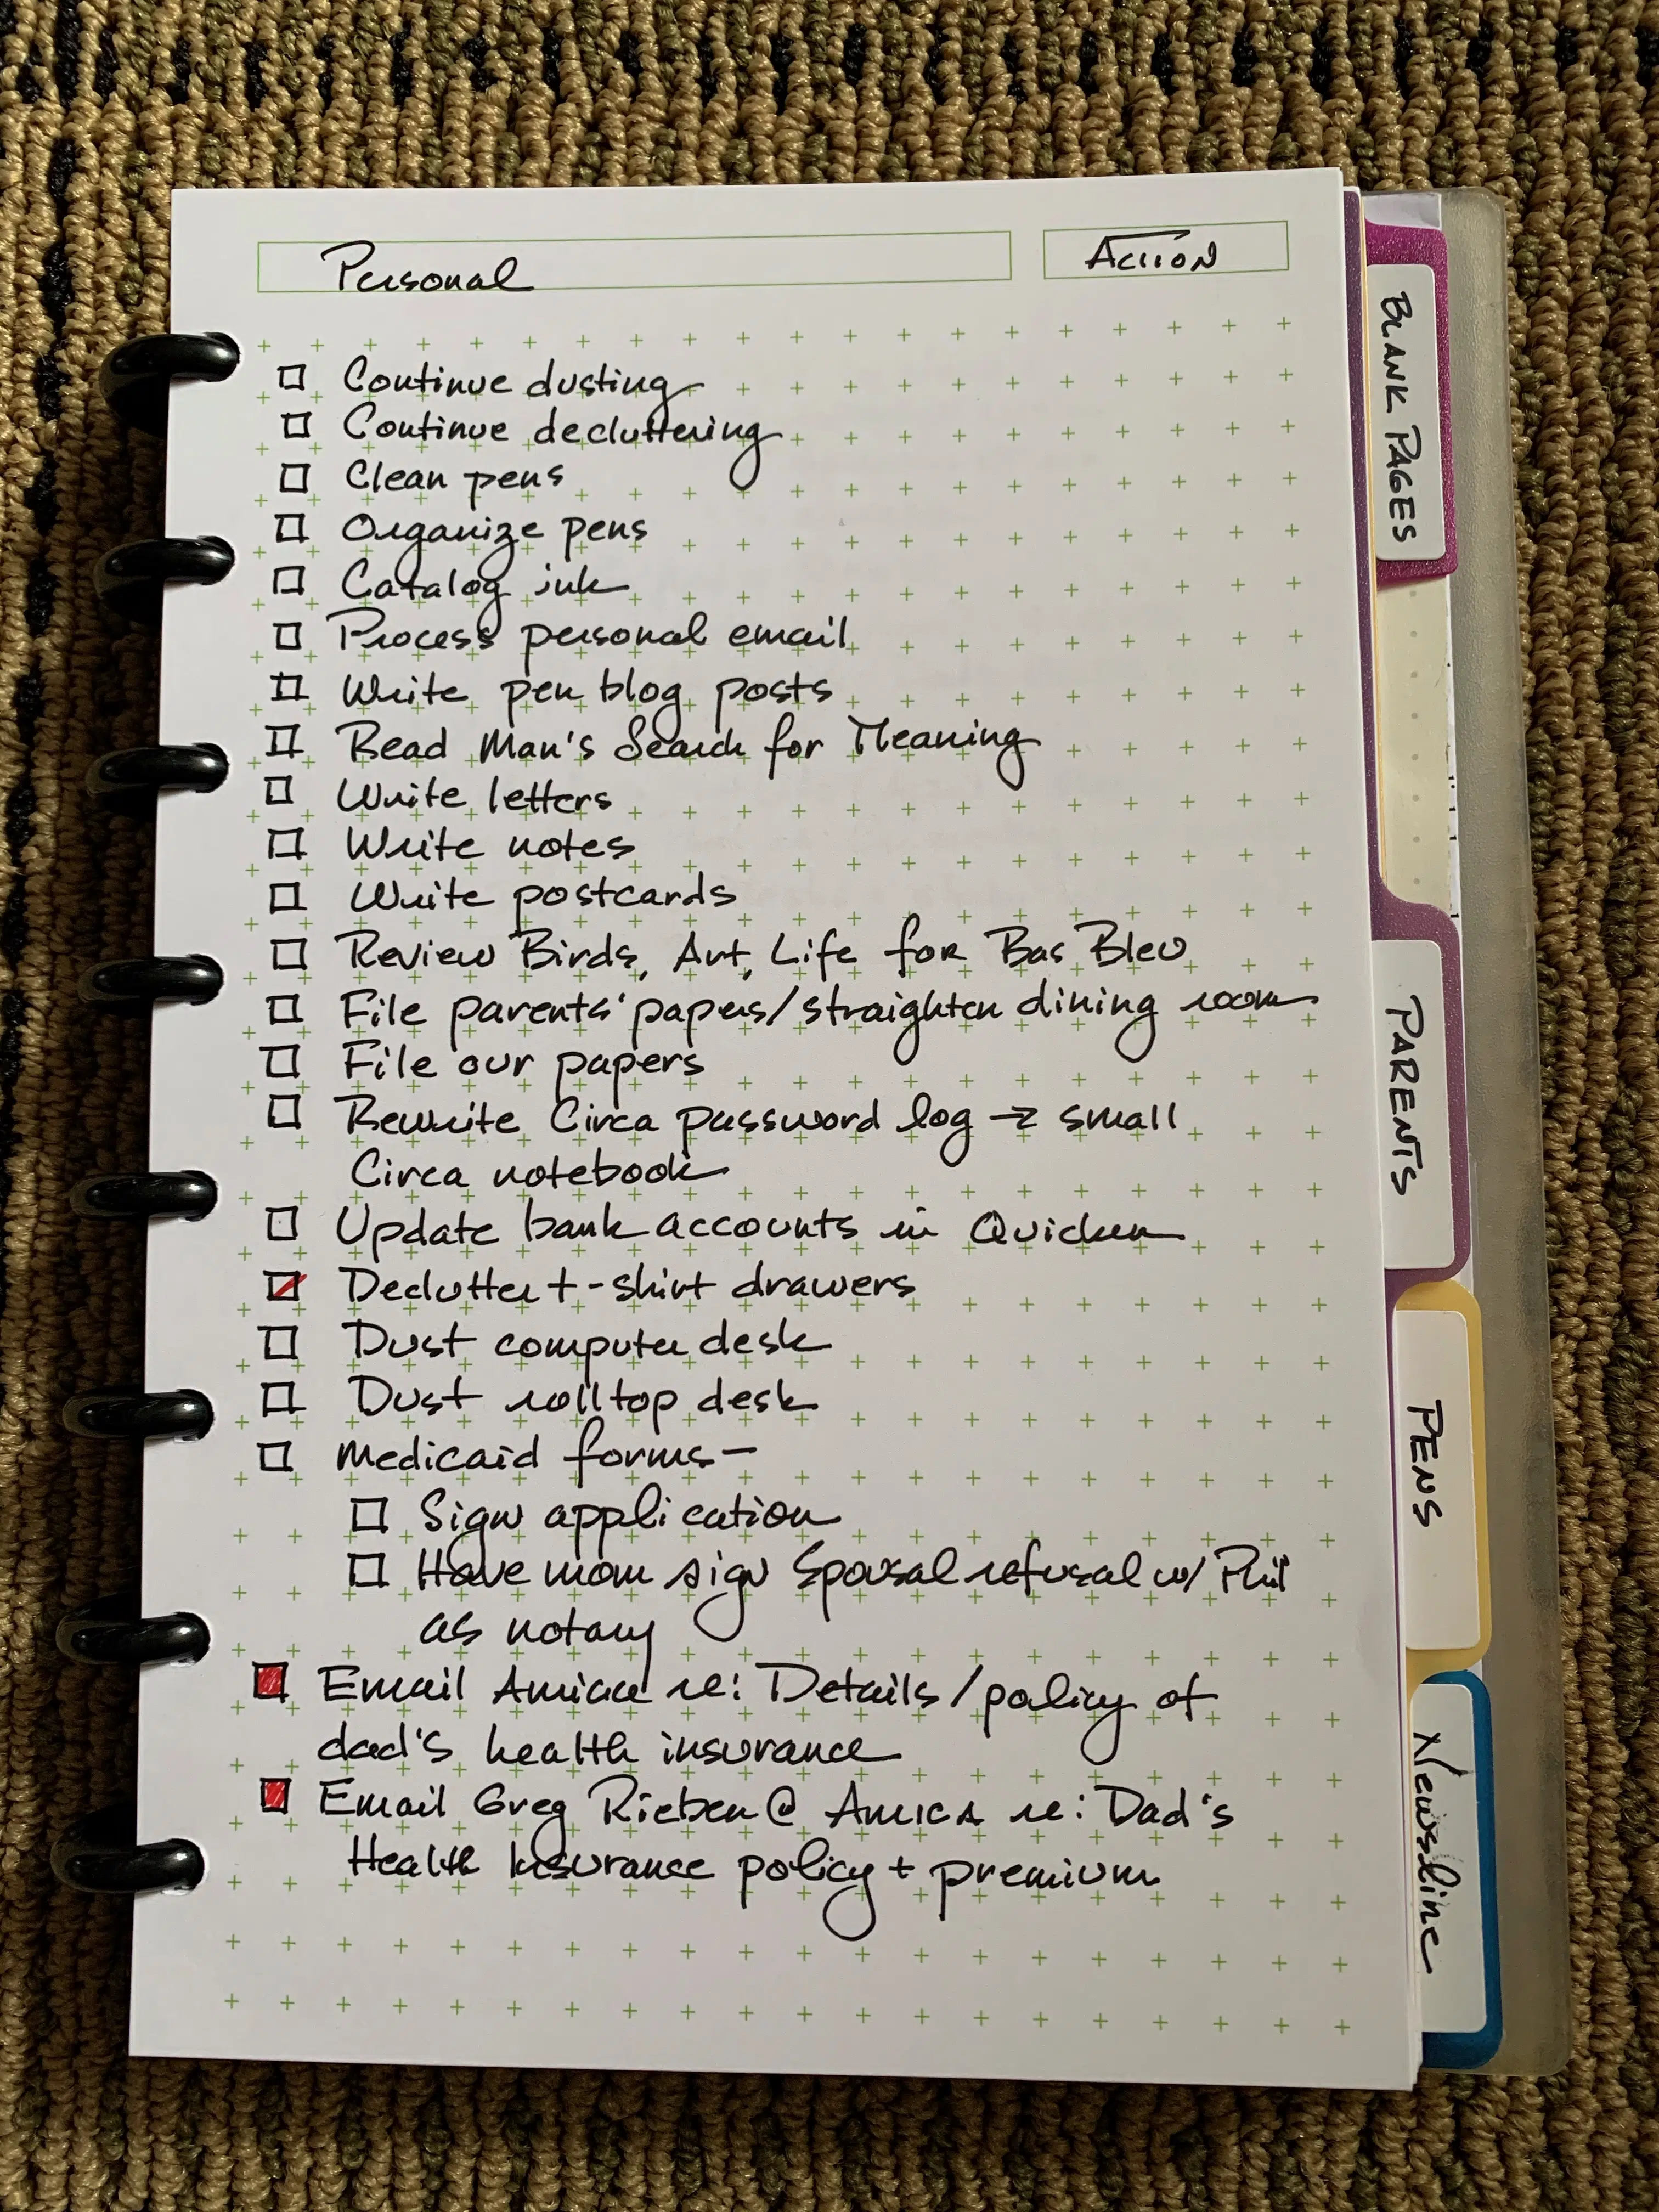 Personal
Action
Continue dusting
Continue decluttering
Clean pens
Organize pens
Catalog ink
Process personal email
Write pen blog posts
Read Man's Search for Meaning
Write letters
Write notes
Write postcards
Review Birds, Art, Life for Bas Bleu
File parents' papers/straighten dining room
File our papers
Rewrite Circa password log → small
Circa notebook
Update bank accounts in Quicken
Declutter t-shirt drawers
Dust computer desk
Dust rolltop desk
Medicaid forms—
Sign application
Have mom sign Spousal refusal w/ Phil
as notary
Email Amica re: Details/policy of
dad's health insurance
Email Greg Rieben @ Amica re: Dad's
Health Insurance policy + premium
BLANK PAGES
PARENTS
PENS
Newsline